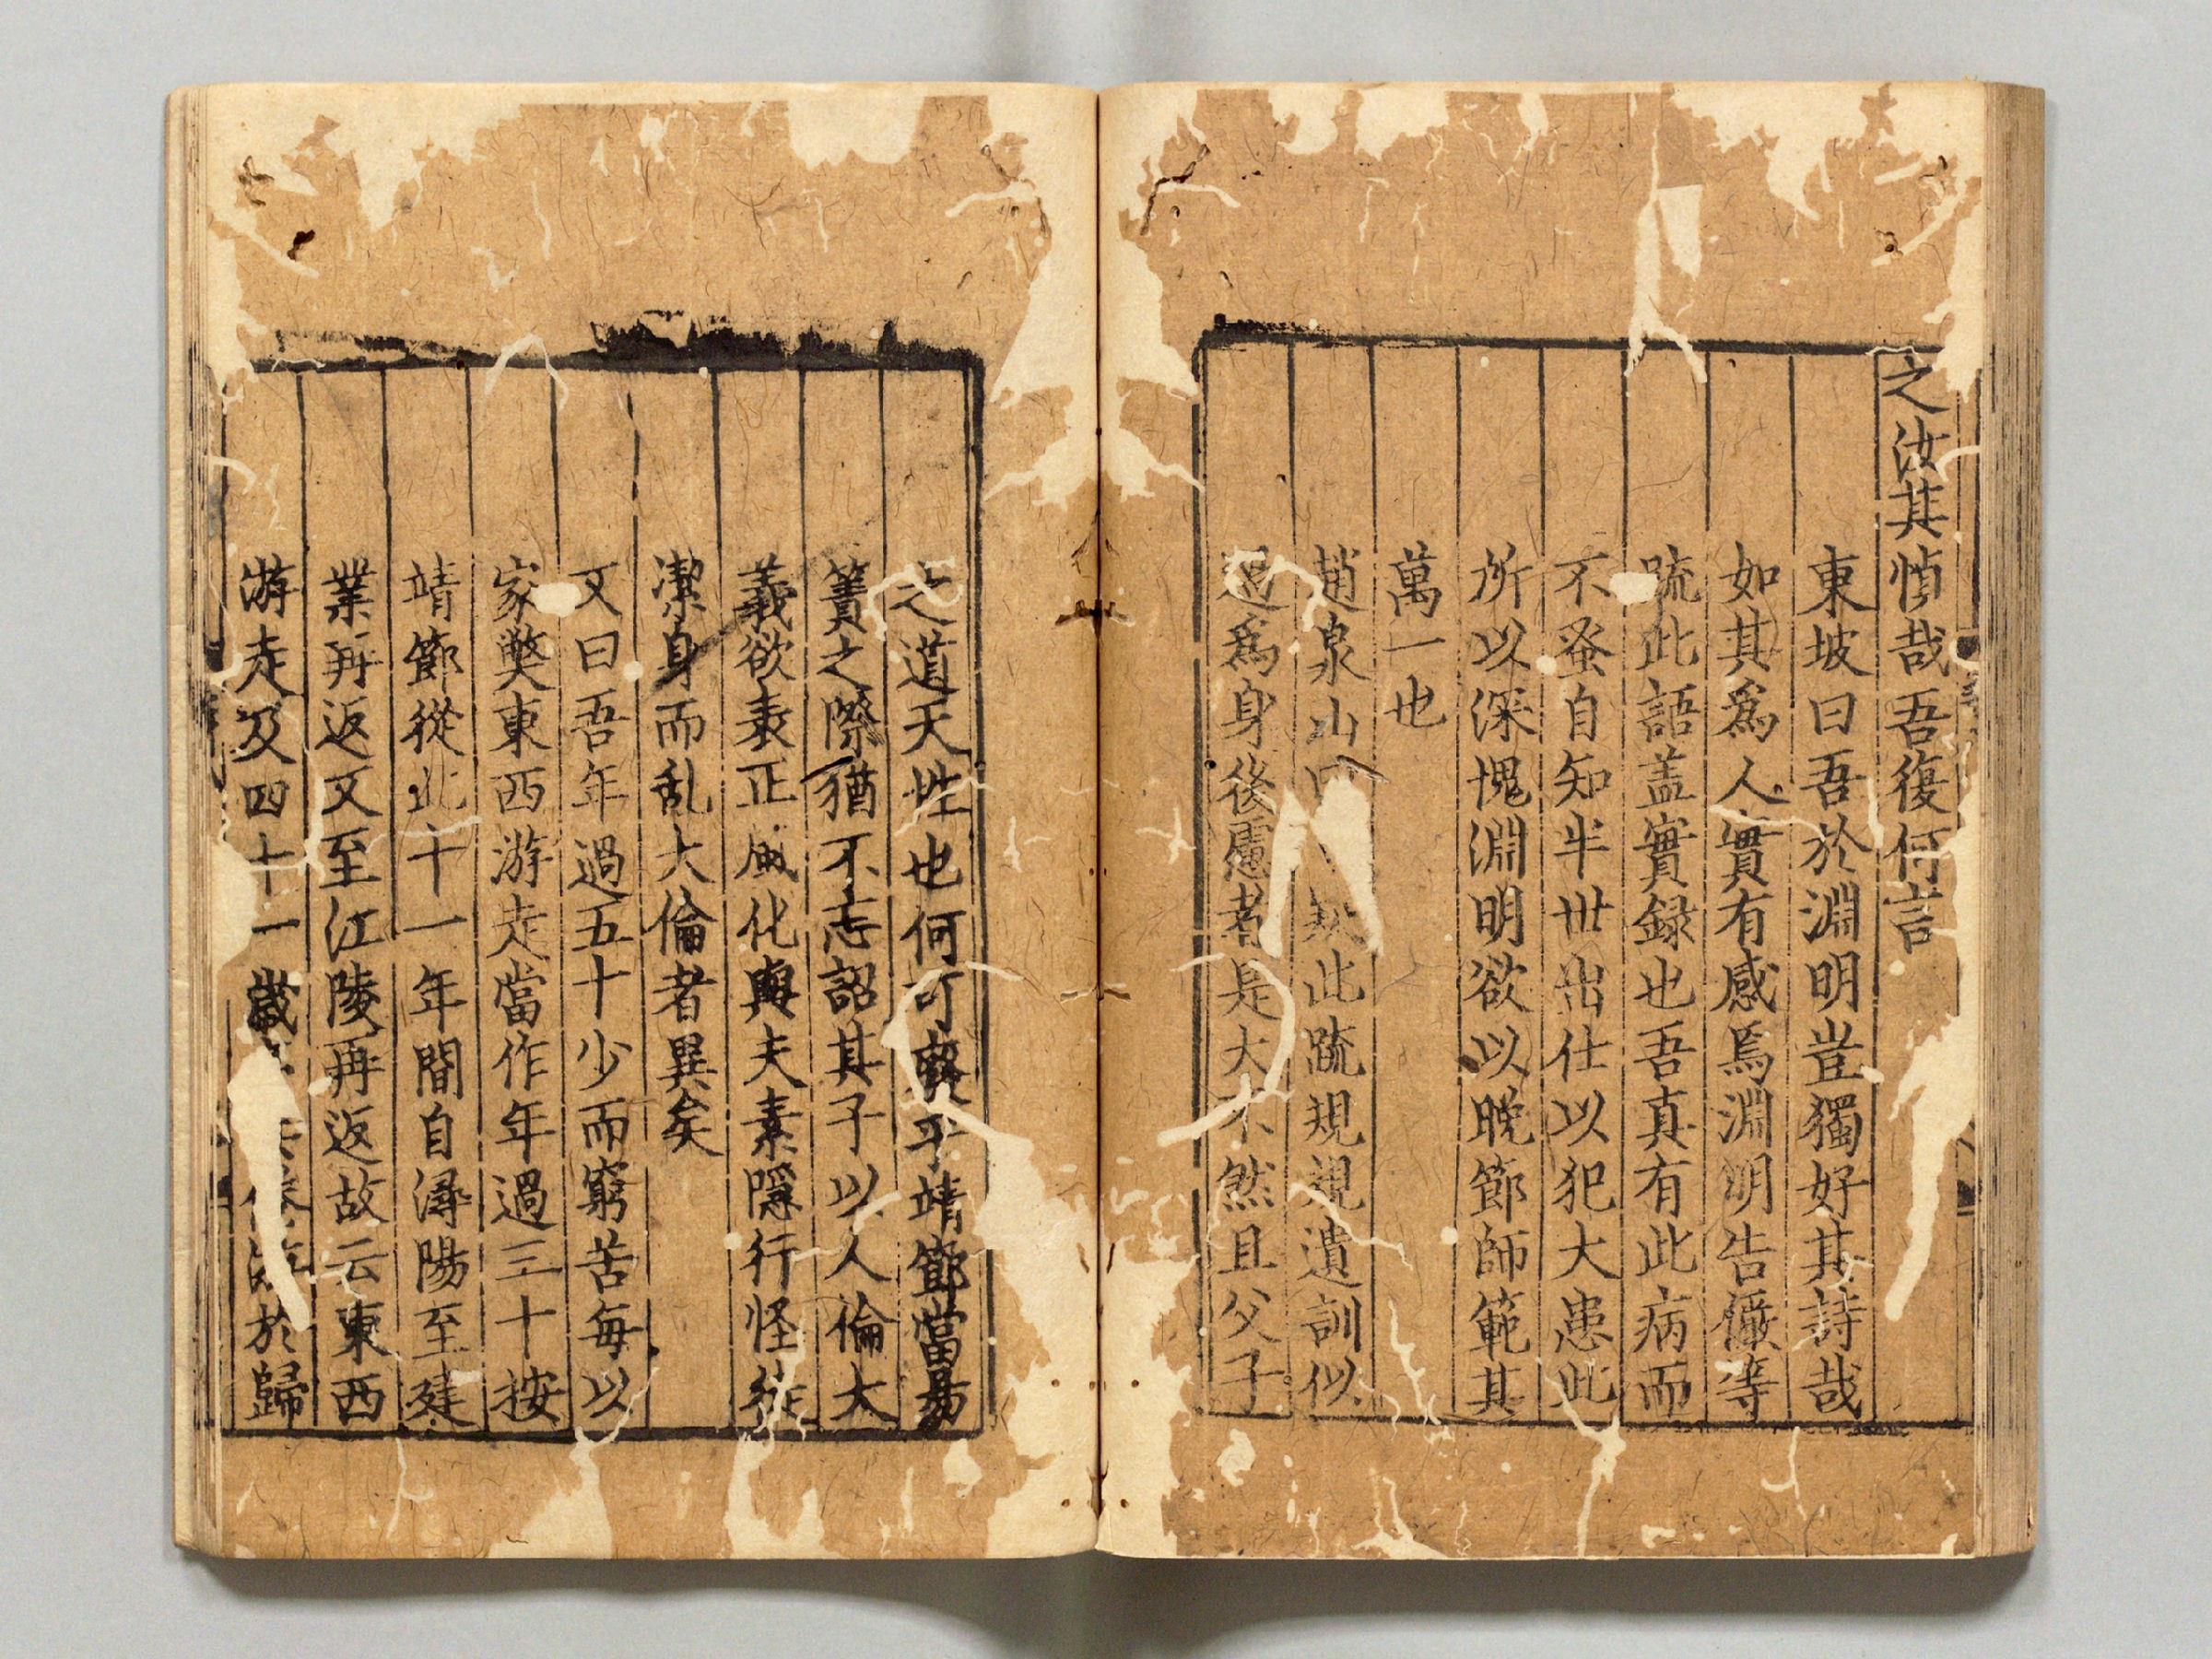 之汝其慎哉吾復何言
東坡曰吾於淵明豈獨好其詩哉
如其爲人實有感焉淵明告儼等
疏此語盖實録也吾真有此病而
不蚤自知半丗出仕以犯大患此
所以深愧淵明欲以晚節師範其
萬一也
趙泉山曰 此疏規規遺訓似
過爲身後慮者是大不然且父子
之道天性也何可廢乎靖節當易
簀之際猶不忘詔其子以人倫大
義欲表正風化與夫素隱行怪徒
潔身而乱大倫者異矣
又曰吾年過五十少而窮苦每以
家獘東西游走當作年過三十按
靖節從此十一年間自潯陽至建
業再返又至江陵再返故云東西
游走及四十一歲 於歸